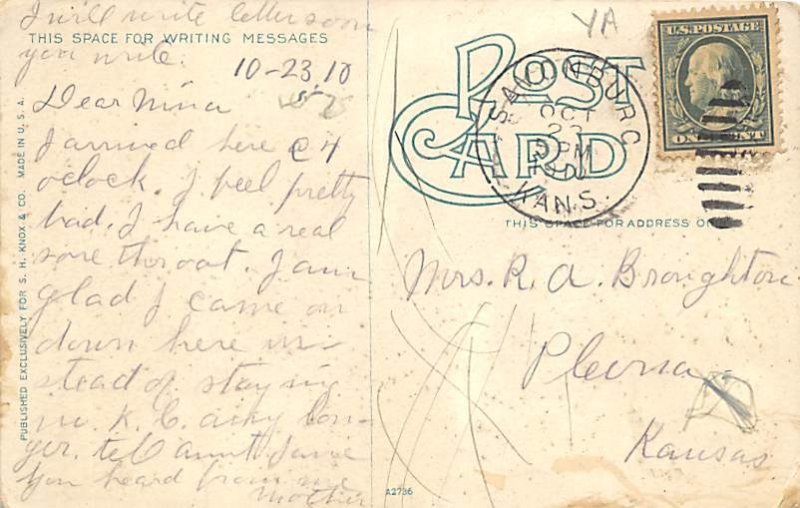 I will write letter soon
you write.
THIS SPACE FOR WRITING MESSAGES
10-23 10
Dear Nina
I arrived here @ 4
oclock. I feel pretty
bad. I have a real
sore throat. I am
glad I came on
down here in-
stead of staying
in K. C. any lon-
ger. tell aunt Jane
you heard from me
Mother
PUBLISHED EXCLUSIVELY FOR S. H. KNOX & CO. MADE IN U. S. A.
POST CARD
SAVONBURG
OCT
23
5 PM
1910
KANS.
U.S. POSTAGE
ONE CENT
THIS SPACE FOR ADDRESS
Mrs. R. A. Broughton
Plevna
Kansas
A2736